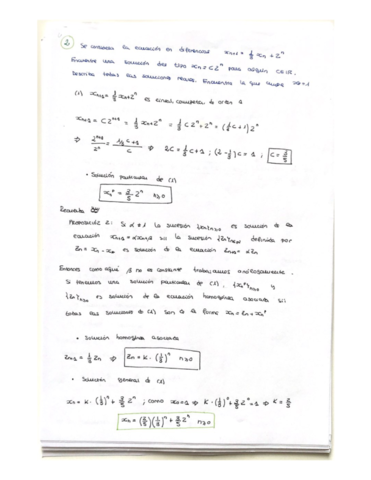 2. Se considera la ecuación en diferencias x_{n+1} = 1/3 x_n + 2^n
Encuentre una solución del tipo x_n = C 2^n para algún C∈ℝ.
Describa todas las soluciones reales. Encuentra la que cumple x_0 = 1
(1) x_{n+1} = 1/3 x_n + 2^n es lineal completa de orden 1
x_{n+1} = C 2^{n+1} = 1/3 x_n + 2^n = 1/3 C 2^n + 2^n = (1/3 C + 1) 2^n
2C = 1/3 C + 1 ; (2 - 1/3) C = 1 ; C = 3/5
• Solución particular de (1)
x_n^* = 3/5 2^n n≥0
Recuerda
Proposición 2: Si α≠1 la sucesión es solución de la
ecuación la sucesión definida por
z_n = x_n - x_n^* es solución de la ecuación z_{n+1} = αz_n
Entonces como aquí β no es constante trabajamos análogamente.
Si tenemos una solución particular de (1), {x_n^*}_{n≥0} y
{z_n}_{n≥0} es solución de la ecuación homogénea asociada
todas las soluciones de (1) son de la forma x_n = z_n + x_n^*
• Solución homogénea asociada
z_{n+1} = 1/3 z_n ⇒ z_n = K · (1/3)^n n≥0
• Solución general de (1)
x_n = K · (1/3)^n + 3/5 2^n ; como x_0 = 1 ⇒ K · (1/3)^0 + 3/5 2^0 = 1 ⇒ K = 2/5
x_n = (2/5)(1/3)^n + 3/5 2^n n≥0